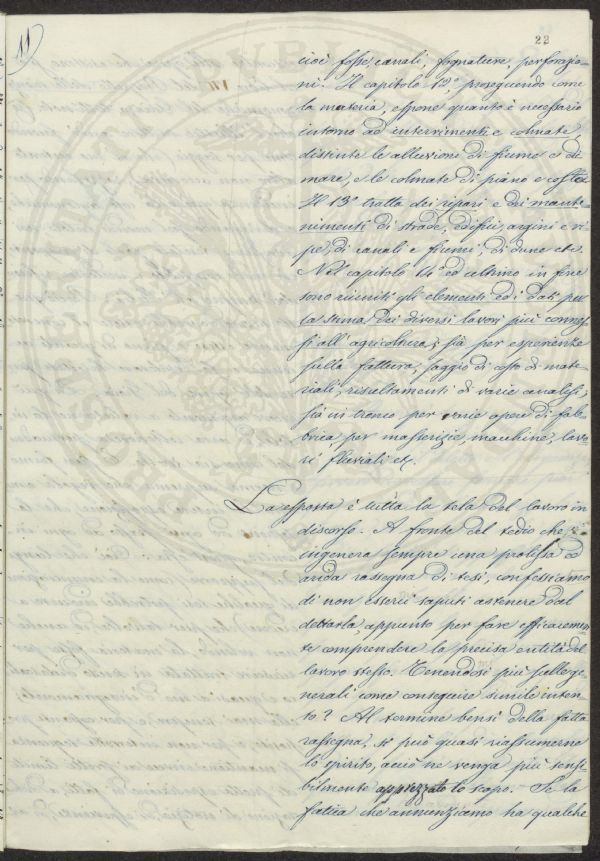 11
22
cioè fosse canali, fognature, perforazio-
ni. Il capitolo 12° proseguendo come
la materia, espone quanto è necessario
intorno ad interrimenti e colmate,
distinte le alluvioni di fiume e di
mare, e le colmate di piano e colle.
Il 13° tratta dei ripari e dei mante-
nimenti di strade, edifici, argini e ri-
pe, di canali e fiumi, di dune etc.
Nel capitolo 14° ed ultimo in fine
sono riuniti gli elementi ed i dati per
la stima dei diversi lavori più connes-
si all'agricoltura; sia per esperienze
sulla fattura, saggio di costo di mate-
riali, risultamenti di varie analisi;
sia in tronco per varie opere di fab-
brica, per masserizie, macchine, lavo-
ri fluviali etc.
La esposta è tutta la tela del lavoro in
discorso. A fronte del tedio che s'
ingenera sempre una prolissa ed
arida rassegna di tesi, confessiamo
di non esserci saputi astenere dal
dettarla, appunto per fare efficacemen-
te comprendere la precisa entità del
lavoro stesso. Tenendosi più sulle ge-
nerali come conseguire simile inten-
to? Al termine bensì della fatta
rassegna, si può quasi riassumerne
lo spirito, acciò ne venga più sensi-
bilmente apprezzato lo scopo. Se la
fatica che annunziamo ha qualche
PUBLIC